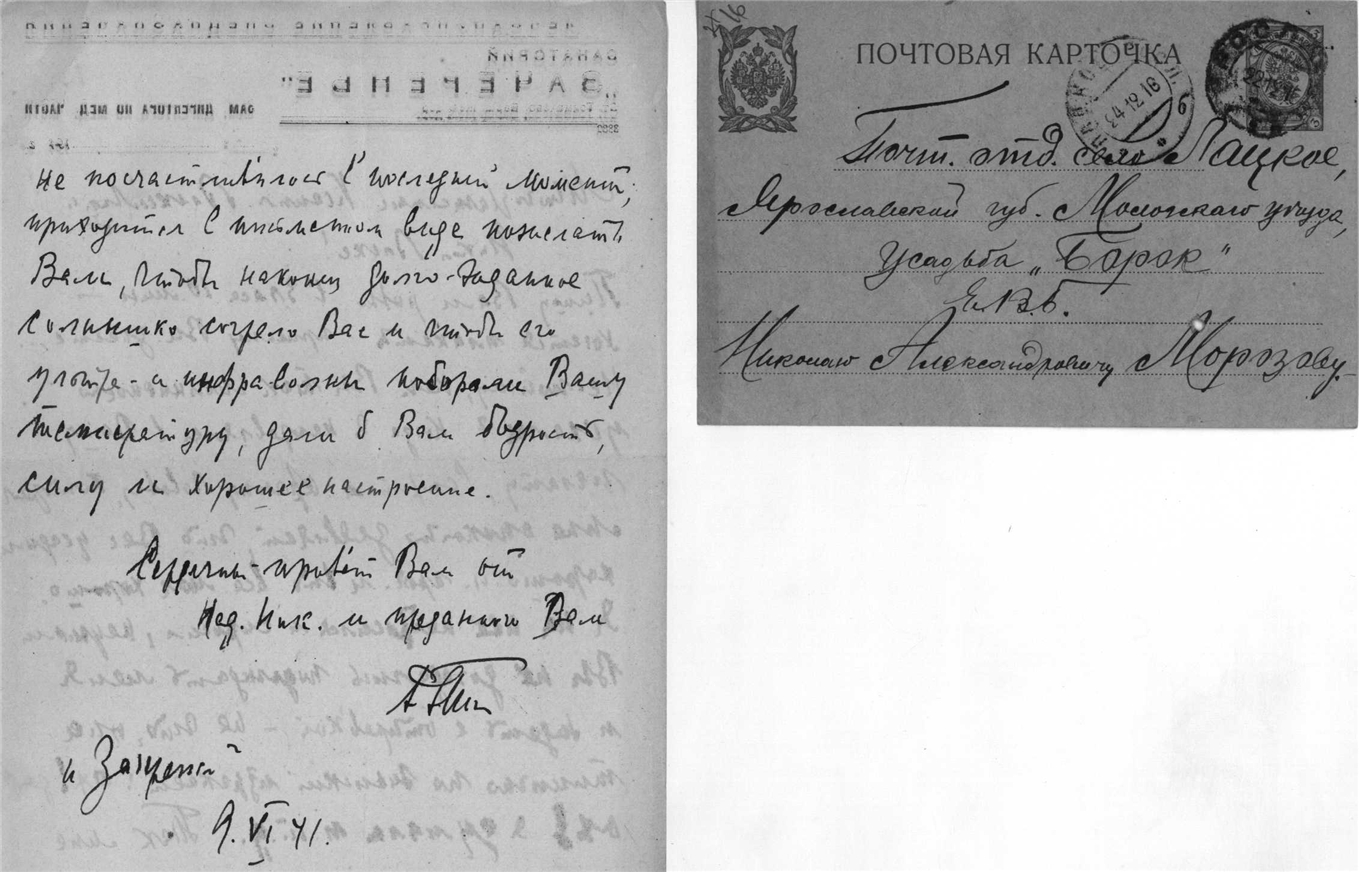 САНАТОРИЙ
„ЗАЧЕРЕНЬЕ"
ЗАМ ДИРЕКТОРА ПО МЕД ЧАСТИ
не посчастливилось в последний момент,
приходится в письменном виде пожелать
Вам, чтобы наконец долго-жданное
солнышко согрело Вас и чтобы его
ультра- и инфраволны побороли Вашу
температуру, дали б Вам бодрость,
силу и хорошее настроение.
Сердечный привет Вам от
Над. Ник. и преданного Вам
9.VI 41.
ПОЧТОВАЯ КАРТОЧКА
24.12.16
Почт. отд. село Лацкое,
Ярославской губ. Мологскаго уезда,
Усадьба „Борок"
Е.В.Б.
Николаю Александровичу Морозову.